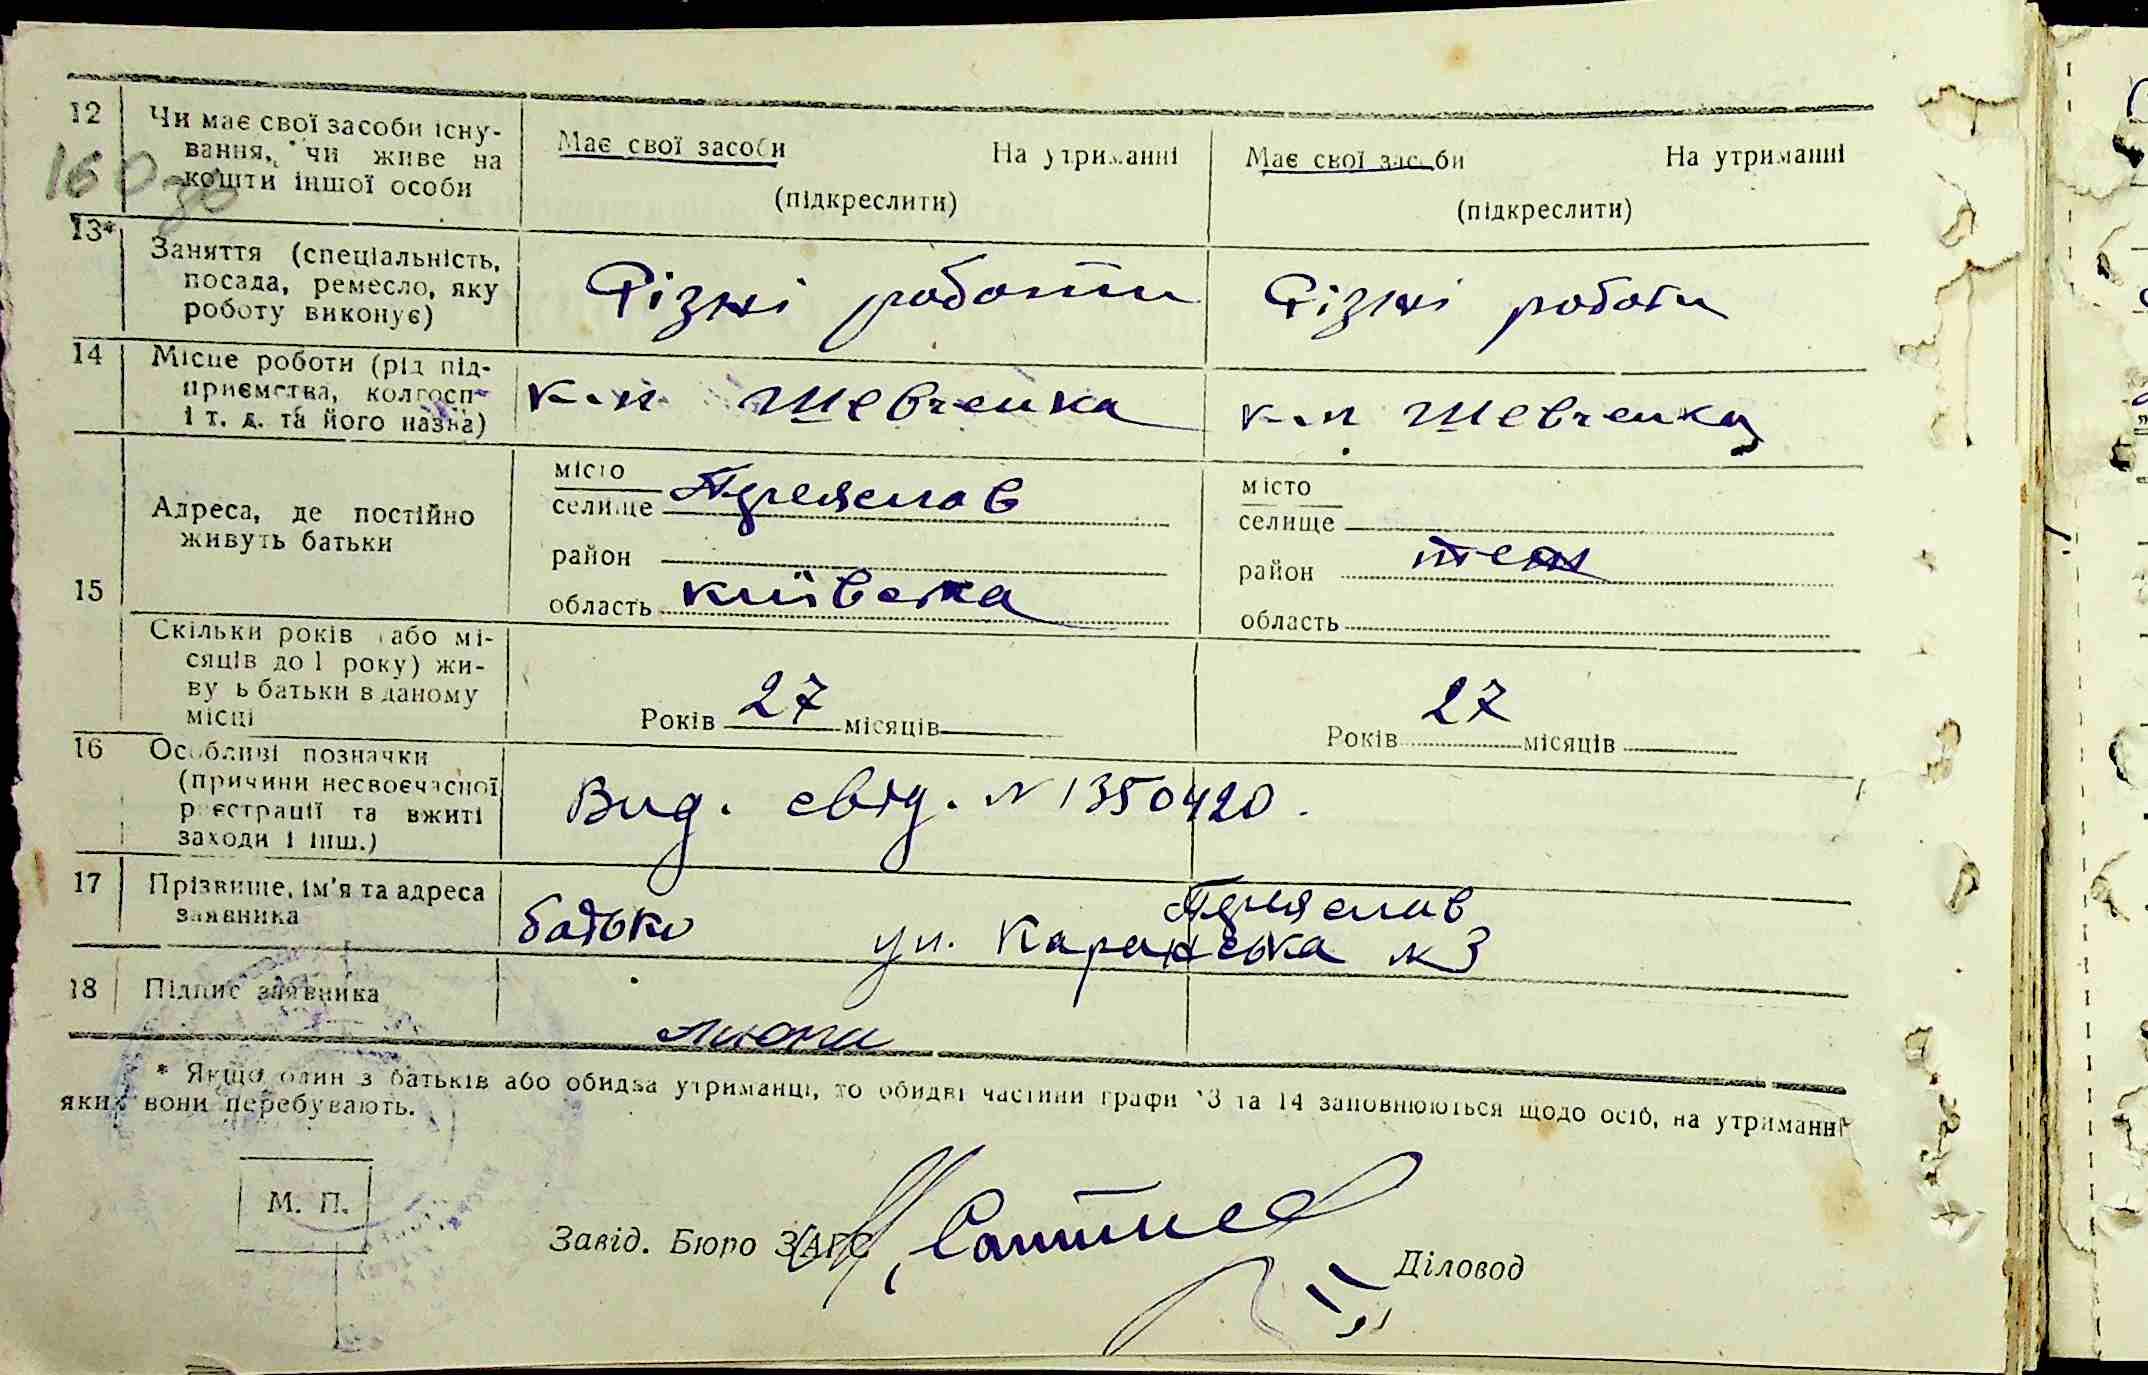 12 Чи має свої засоби існу-
вання, чи живе на
кошти іншої особи
Має свої засоби На утриманні
(підкреслити)
Має свої засоби На утриманні
(підкреслити)
160
13* Заняття (спеціальність,
посада, ремесло, яку
роботу виконує)
Різні роботи
Різні роботи
14 Місце роботи (рід під-
приємства, колгосп
і т. д. та його назва)
к-п Шевченка
к-п Шевченка
15 Адреса, де постійно
живуть батьки
місто
селище Переяслав
район
область київська
місто
селище
район теж
область
Скільки років або мі-
сяців до 1 року) жи-
вуть батьки в даному
місці
Років 27 місяців
Років 27 місяців
16 Особливі позначки
(причини несвоєчасної
реєстрації та вжиті
заходи і інш.)
Вид. свід. N 1350420.
17 Прізвище, ім'я та адреса
заявника
батько Переяслав
ул. Каранська N 3
18 Підпис заявника
* Якщо один з батьків або обидва утриманці, то обидві частини графи 13 та 14 заповнюються щодо осіб, на утриманні
яких вони перебувають.
М. П.
Завід. Бюро ЗАГС
Діловод